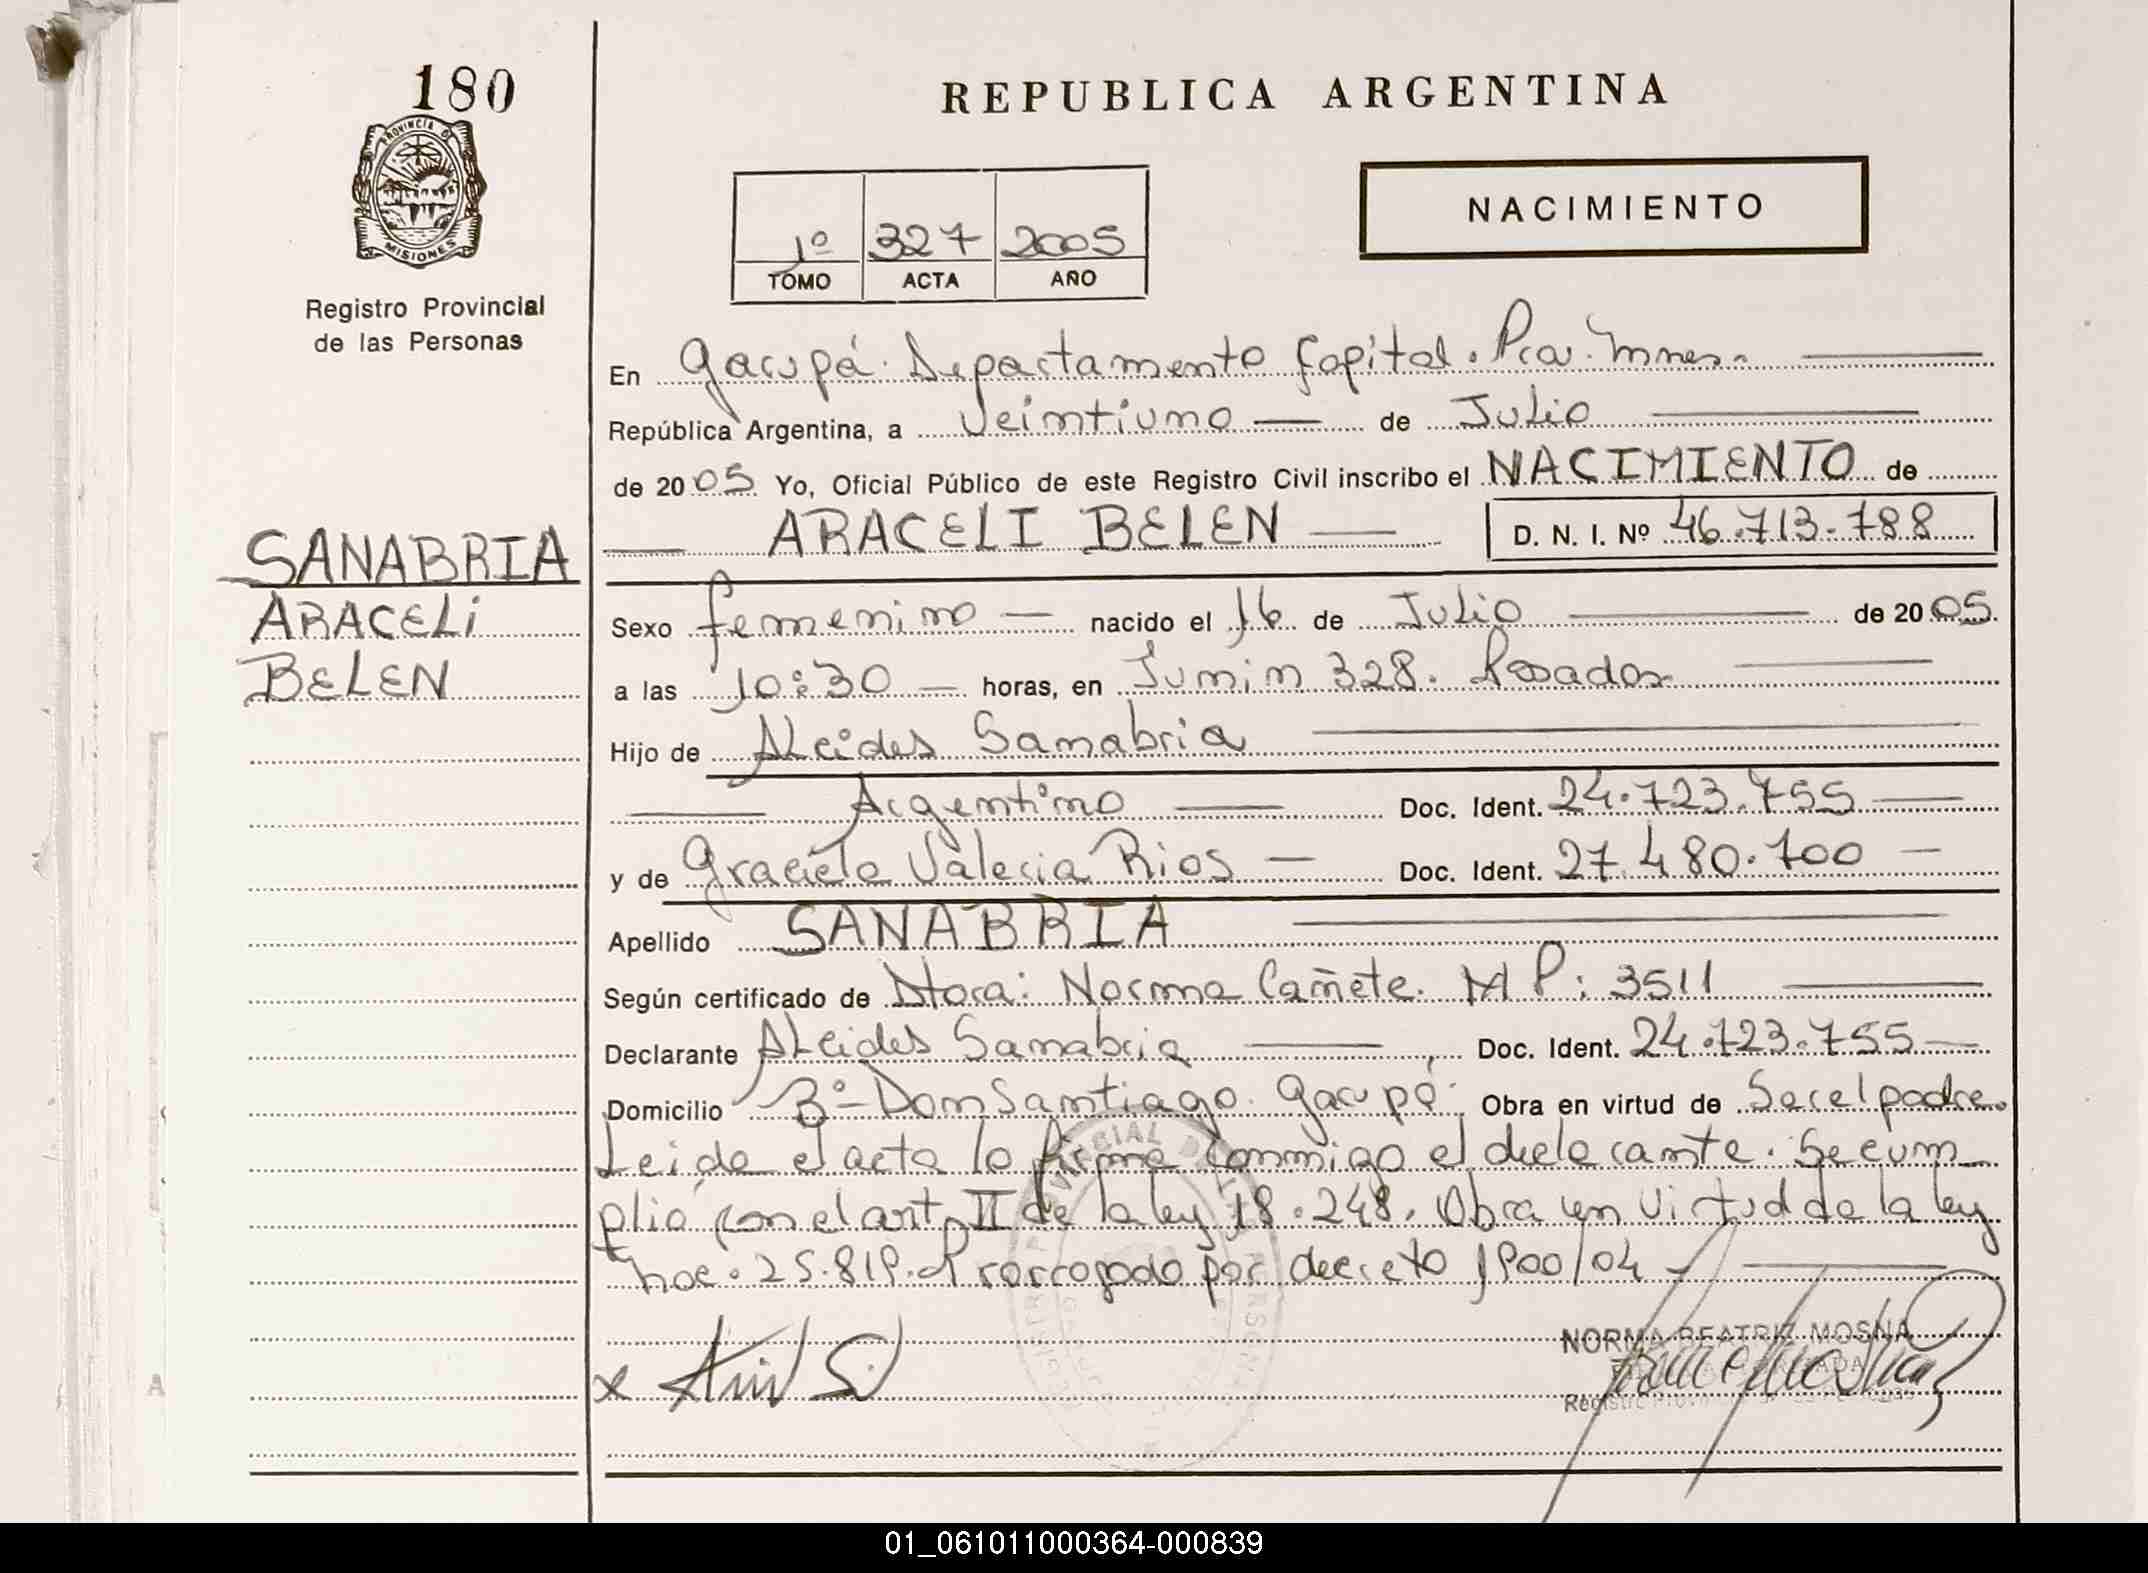 180
PROVINCIA DE
MISIONES
Registro Provincial
de las Personas
SANABRIA
ARACELI
BELEN
REPUBLICA ARGENTINA
1º 327 2005
TOMO ACTA AÑO
NACIMIENTO
En Garupá. Departamento Capital. Pcia. Mnes.
República Argentina, a Veintiuno de Julio
de 2005 Yo, Oficial Público de este Registro Civil inscribo el NACIMIENTO de
ARACELI BELEN D. N. I. Nº 46.713.788
Sexo femenino nacido el 16 de Julio de 2005.
a las 10:30 horas, en Junin 328. Posadas
Hijo de Alcides Sanabria
Argentino Doc. Ident. 24.723.755
y de Graciela Valeria Rios Doc. Ident. 27.480.700
Apellido SANABRIA
Según certificado de Dtora: Norma Cañete. MP: 3511
Declarante Alcides Sanabria, Doc. Ident. 24.723.755
Domicilio Bº Don Santiago. Garupá. Obra en virtud de Ser el padre.
Leida el acta la firma conmigo el declarante. Se cum
plió con el art. II de la ley 18.248. Obra en virtud de la ley
nac. 25.819. Prorrogado por decreto 1900/04
NORMA BEATRIZ MOSNA
01_061011000364-000839